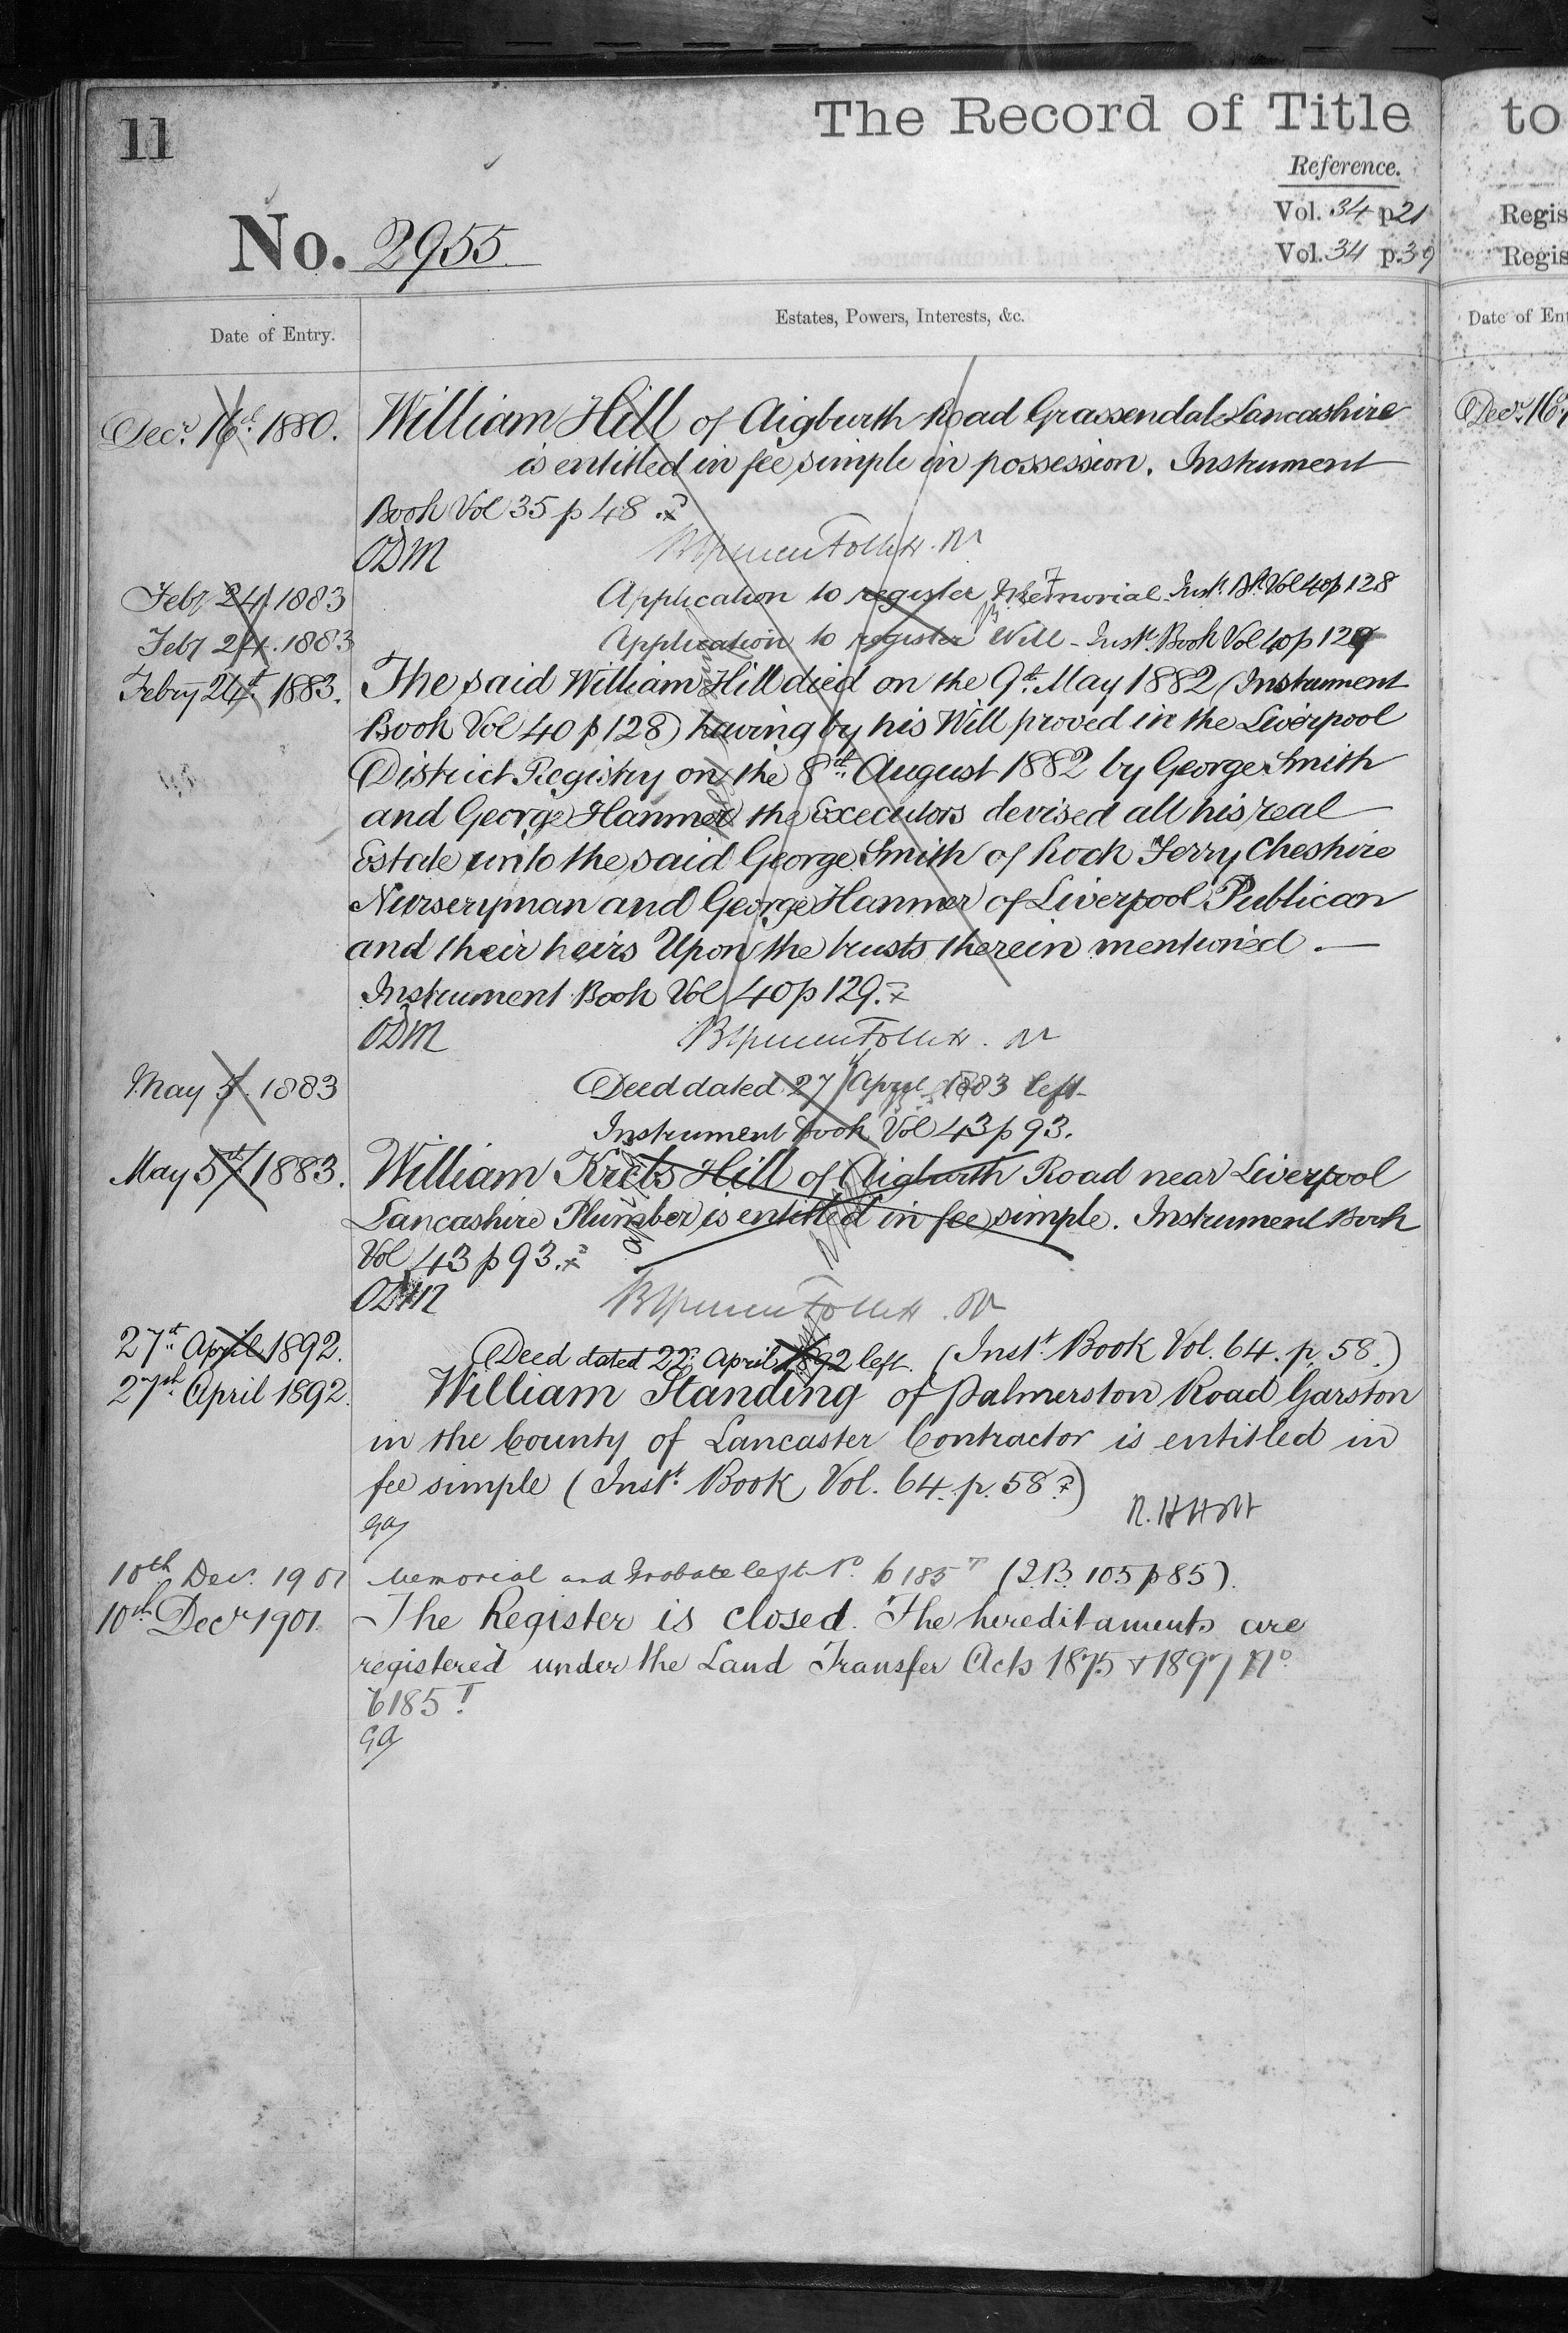 11
The Record of Title
to
Reference.
No. 2955.
Vol. 34 p 21
Vol. 34 p. 39
Regis
Regis
Date of Entry.
Estates, Powers, Interests, &c.
Date of Ent
Decr. 16th 1880.
William Hill of Aigburth Road Grassendale Lancashire
Decr. 16th
is entitled in fee simple in possession. Instrument
Book Vol 35 p 48.
ODM
Feby 24. 1883
Application to register Memorial Inst. Bk. Vol 40 p 128
Feby 24. 1883
Application to register Will - Inst. Book Vol 40 p 129
Febry 24th. 1883.
The said William Hill died on the 9th. May 1882 (Instrument
Book Vol 40 p 128) having by his Will proved in the Liverpool
District Registry on the 8th. August 1882 by George Smith
and George Hanmer the Executors devised all his real
Estate unto the said George Smith of Rock Ferry Cheshire
Nurseryman and George Hanmer of Liverpool Publican
and their heirs Upon the trusts therein mentioned. —
Instrument Book Vol 40 p 129.
ODM
May 5. 1883
Deed dated 27 April 1883 left
Instrument Book Vol 43 p 93.
May 5th 1883.
William Krets Hill of Aigburth Road near Liverpool
Lancashire Plumber is entitled in fee simple. Instrument Book
Vol 43 p 93.
ODM
27th April 1892.
Deed dated 22d April 1892 left. (Inst. Book Vol. 64. p. 58.)
27th. April 1892.
William Standing of Palmerston Road Garston
in the County of Lancaster Contractor is entitled in
fee simple (Inst. Book Vol. 64. p. 58)
GA
10th Decr. 1901
Memorial and Probate left No. 6185T (2B. 105 p 85).
10th Decr 1901.
The Register is closed. The hereditaments are
registered under the Land Transfer Acts 1875 & 1897 No
6185T
GA